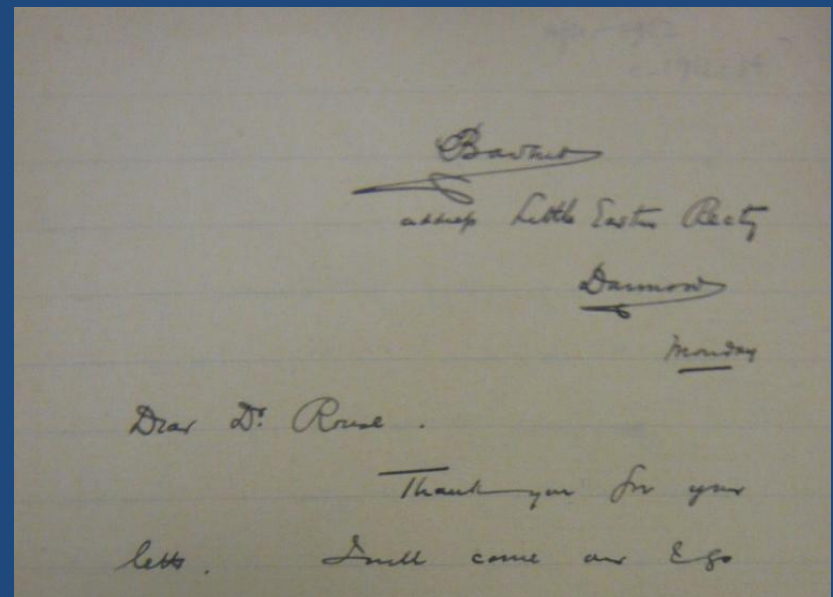 Barnet
address Little Easton Recty
Dunmow
Monday
Dear Dr. Rouse.
Thank you for your
letter. I will come over & go